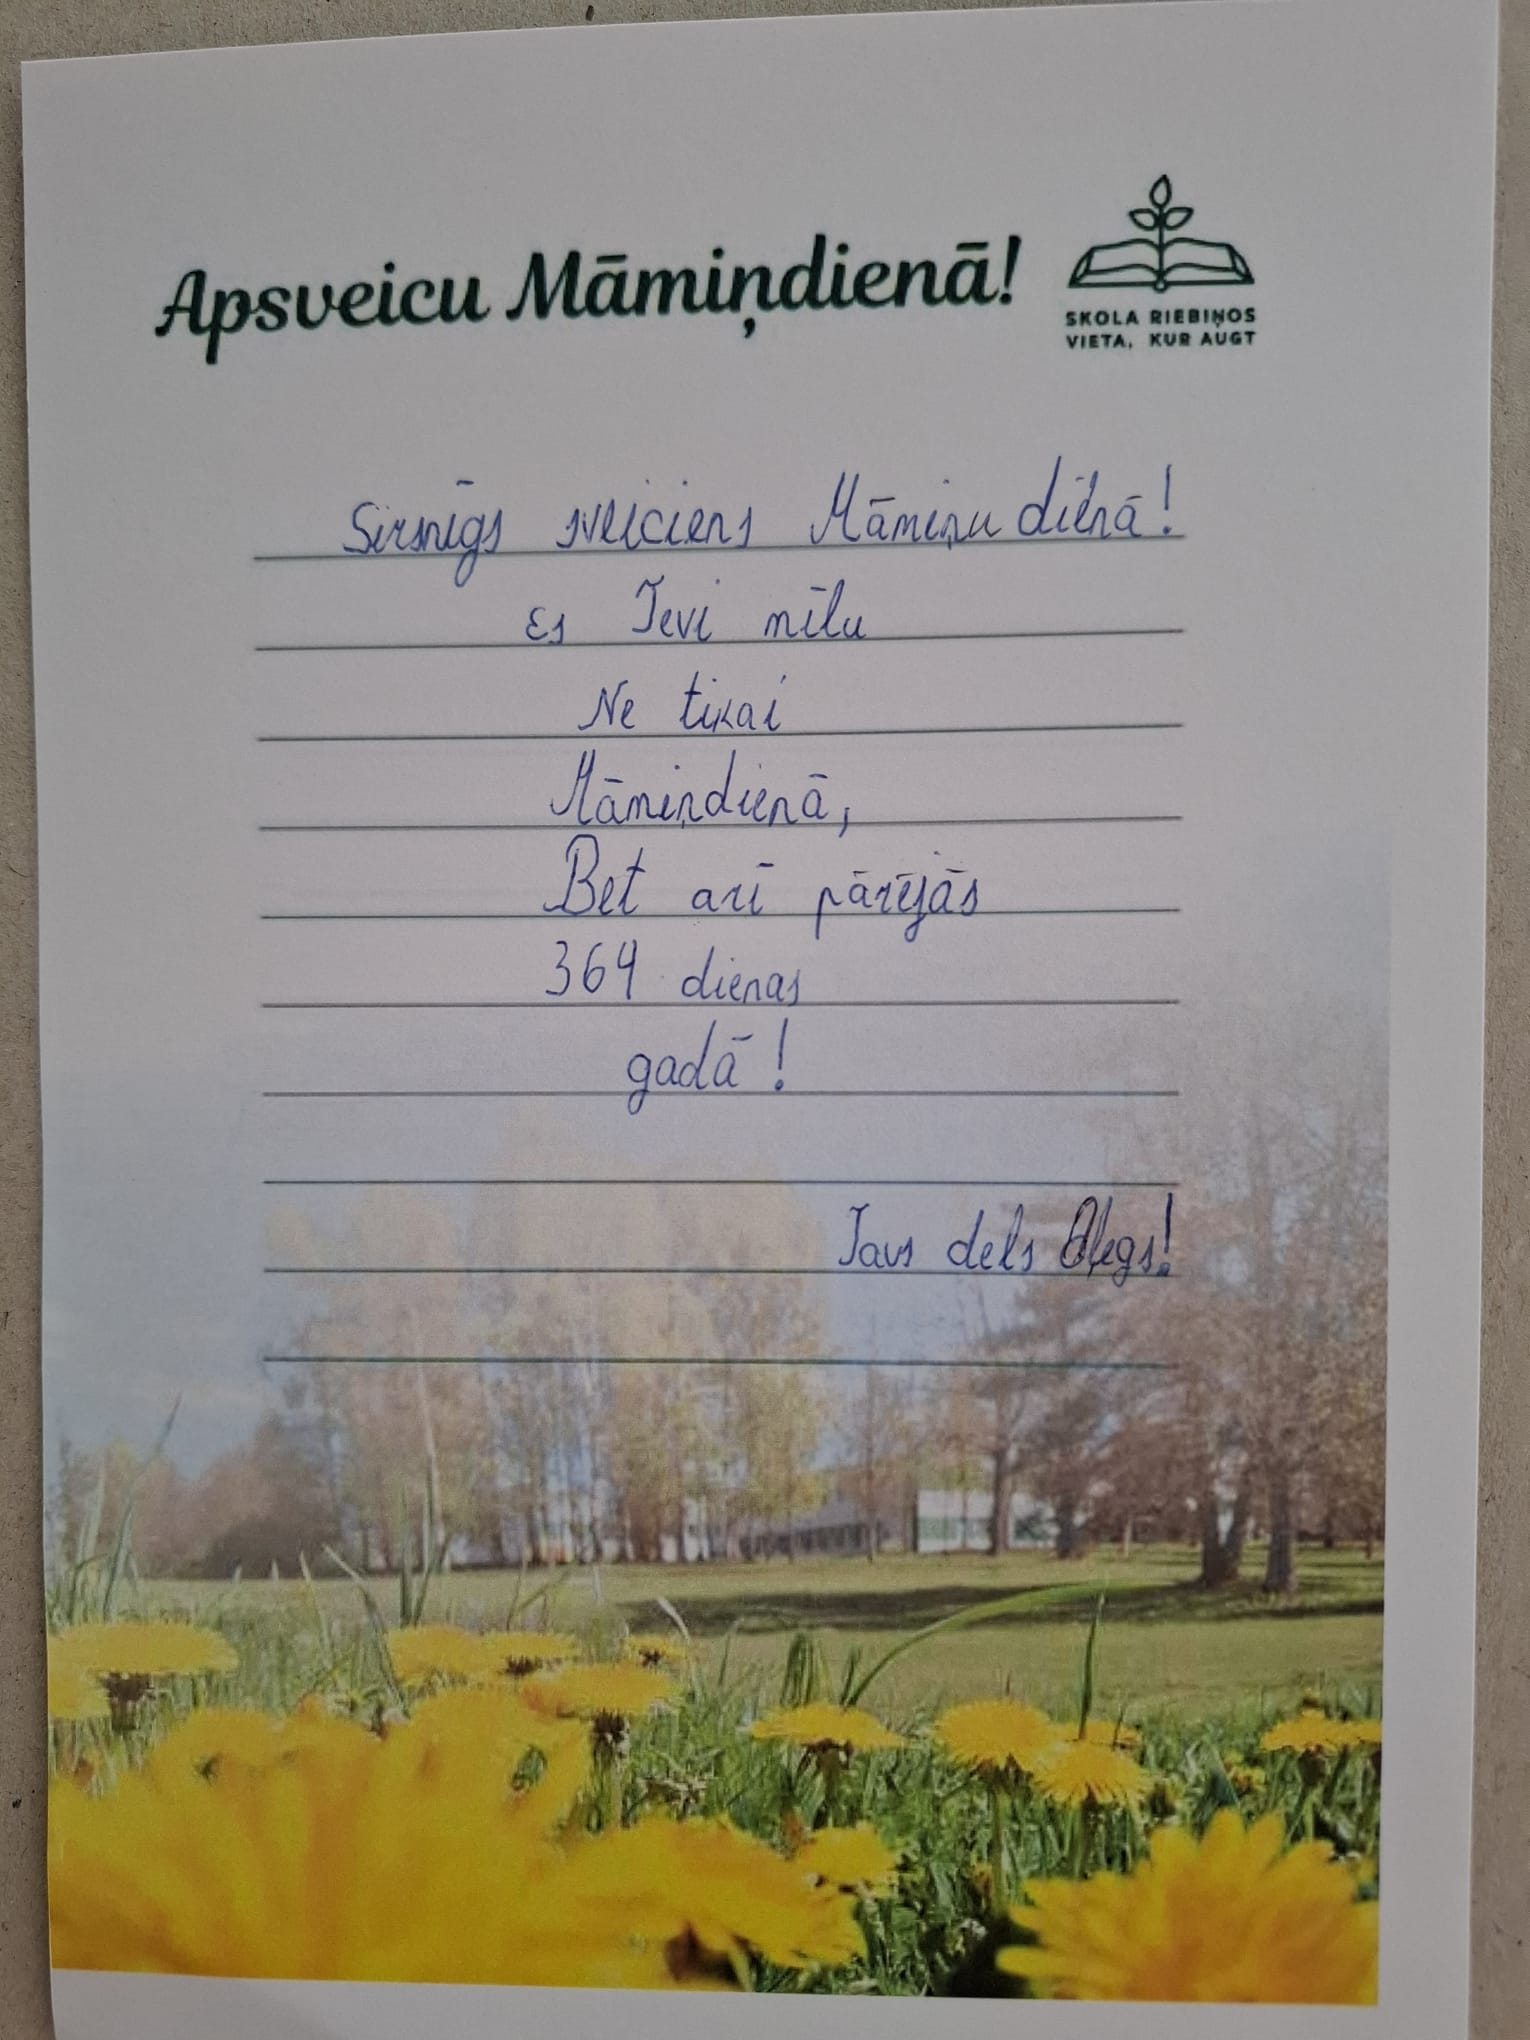 Apsveicu Māmiņdienā!
SKOLA RIEBIŅOS
VIETA, KUR AUGT
Sirsnīgs sveiciens Māmiņu dienā!
Es Tevi mīlu
Ne tikai
Māmiņdienā,
Bet arī pārējās
364 dienas
gadā!
Tavs dels Oļegs!